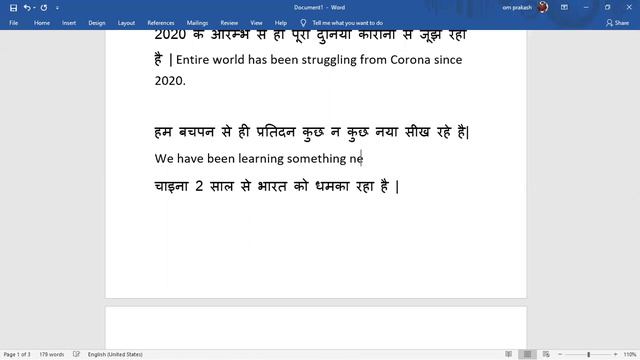 Document1 - Word
om prakash
File Home Insert Design Layout References Mailings Review View Help Tell me what you want to do
Share
2020 के आरम्भ से ही पूरी दुनिया कोरोना से जूझ रहा
है | Entire world has been struggling from Corona since
2020.
हम बचपन से ही प्रतिदन कुछ न कुछ नया सीख रहे है|
We have been learning something ne
चाइना 2 साल से भारत को धमका रहा है |
Page 1 of 3 179 words English (United States) 110%